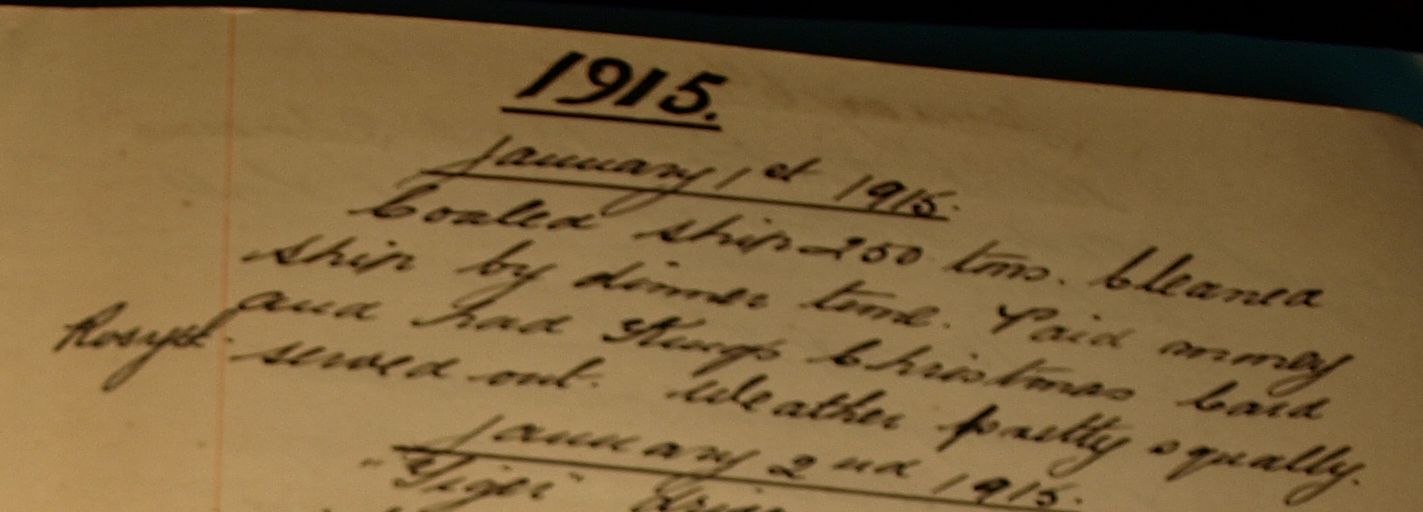 1915.
January 1st 1915.
Coaled ship 250 tons. Cleaned
ship by dinner time. Paid money
and had Kings Christmas Card
Rosyth. served out. Weather pretty squally.
January 2nd 1915.
"Tiger"